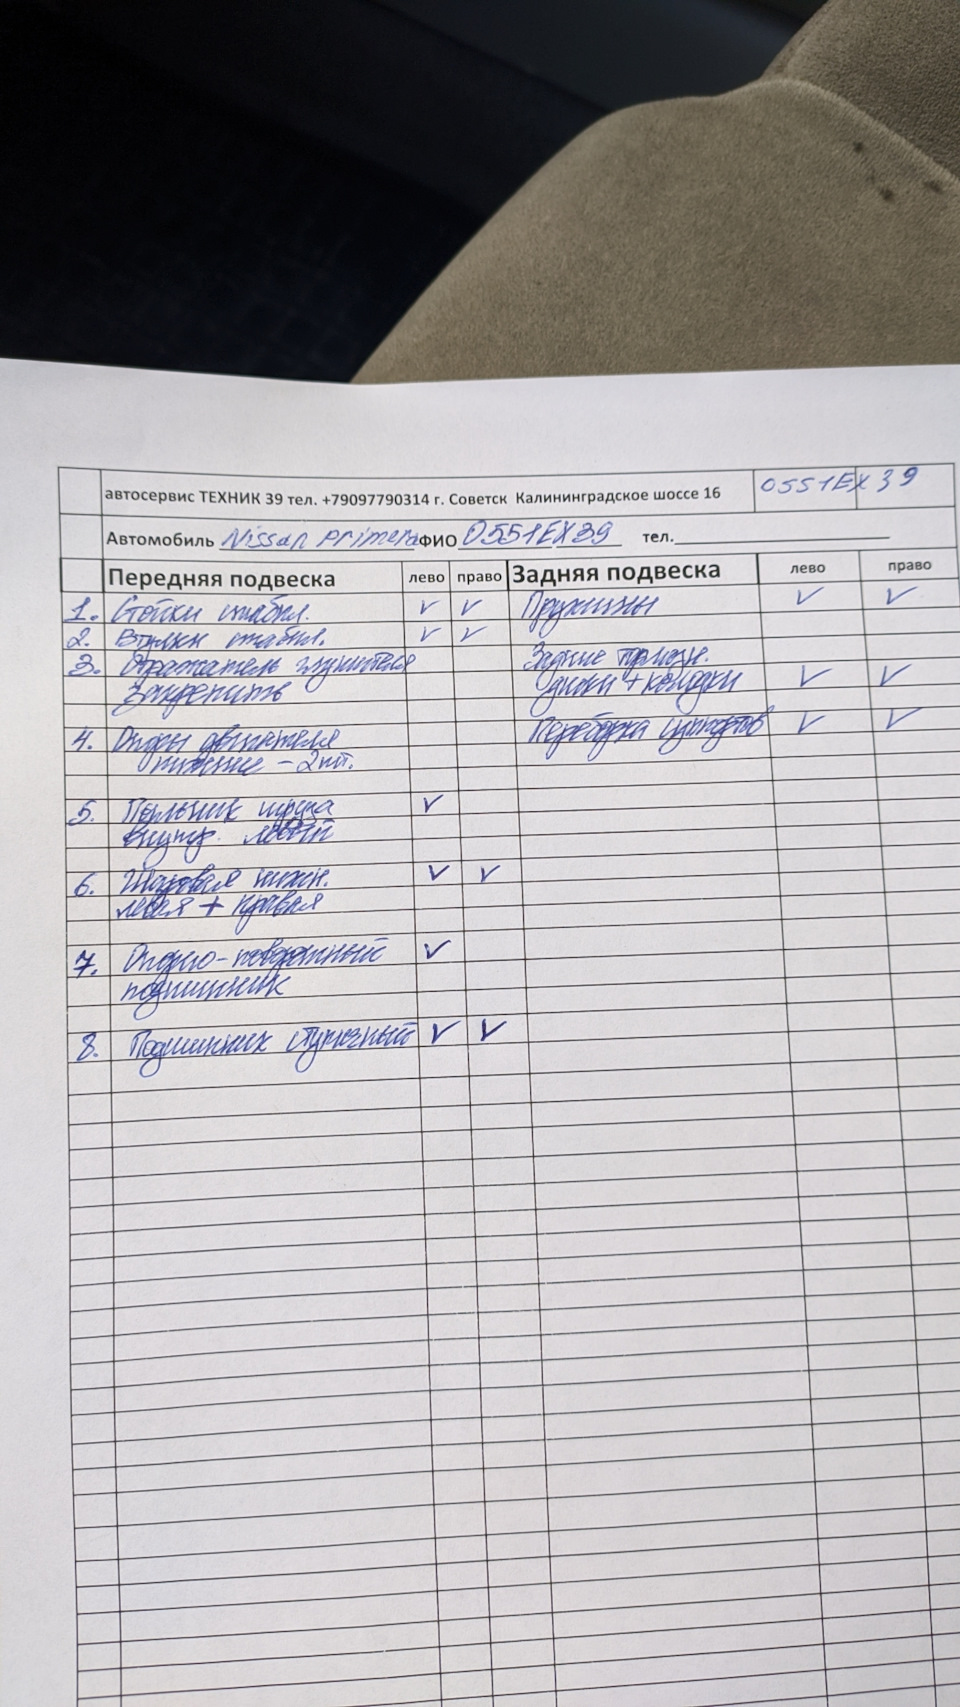 автосервис ТЕХНИК 39 тел. +79097790314 г. Советск Калининградское шоссе 16 О551ЕХ 39
Автомобиль Nissan primera ФИО О551ЕХ39 тел.
Передняя подвеска лево право Задняя подвеска лево право
1. Стойки стабил. V V Пружины V V
2. Втулки стабил. V V
3. Отражатель глушителя Задние тормозн.
Закрепить диски + колодки V V
4. Опоры двигателя Переборка суппортов V V
нижние - 2шт.
5. Пыльник шруса V
внутр. левый
6. Шаровая нижн. V V
левая + правая
7. Опорно-поворотный V
подшипник
8. Подшипник ступичный V V